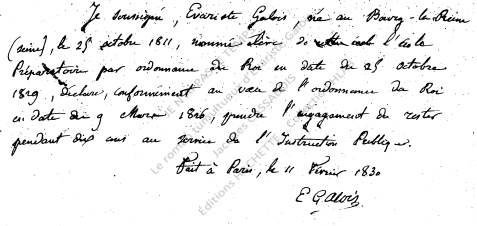 Je soussigné, Evariste Galois, né au Bourg-la-Reine
(seine), le 25 octobre 1811, nommé élève de l'école
Préparatoire par ordonnance du Roi en date du 25 octobre
1829, déclare, conformément au vœu de l'ordonnance du Roi
en date du 9 Mars 1826, prendre l'engagement de rester
pendant dix ans au service de l'Instruction Publique.
Fait à Paris, le 11 Février 1830
E Galois